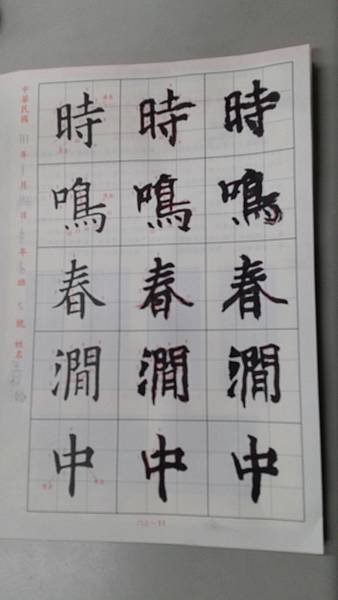 時鳴春澗中
時鳴春澗中
時鳴春澗中
中華民國 年 月 日 年 班 號 姓名